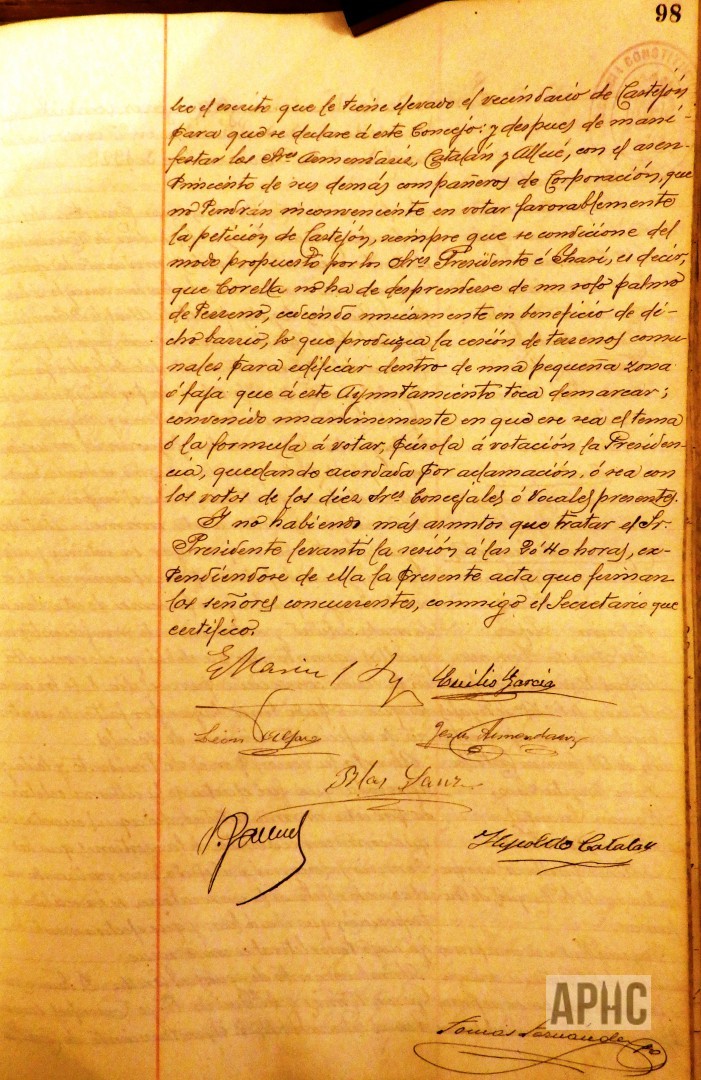 98
CONSTI
bre el escrito que le tiene elevado el vecindario de Castejón
para que se declare á este Concejo; y despues de mani-
festar los Sres Armendariz, Catalán y Allué, con el asen-
timiento de sus demás compañeros de Corporación, que
no tendrán inconveniente en votar favorablemente
la petición de Castejón, siempre que se condicione del
modo propuesto por los Sres Presidente é, es decir,
que Corella no ha de desprenderse de un solo palmo
de terreno, cediendo unicamente en beneficio de di-
cho barrio, lo que produzca la cesión de terrenos comu-
nales para edificar dentro de una pequeña zona
ó faja que á este Ayuntamiento toca demarcar;
convenido unanimemente en que ese sea el tema
ó la formula á votar, púsola á votación la Presiden-
cia, quedando acordada por aclamación, ó sea con
los votos de los diez Sres Concejales ó Vocales presentes.
Y no habiendo más asuntos que tratar el Sr.
Presidente levantó la sesión á las 20'40 horas, ex-
tendiéndose de ella la presente acta que firman
los señores concurrentes, conmigo el Secretario que
certifico.
Emilio García
León
Jesús Armendariz
Blas Sanz
Hipolito Catalan
APHC
Tomás Fernandez